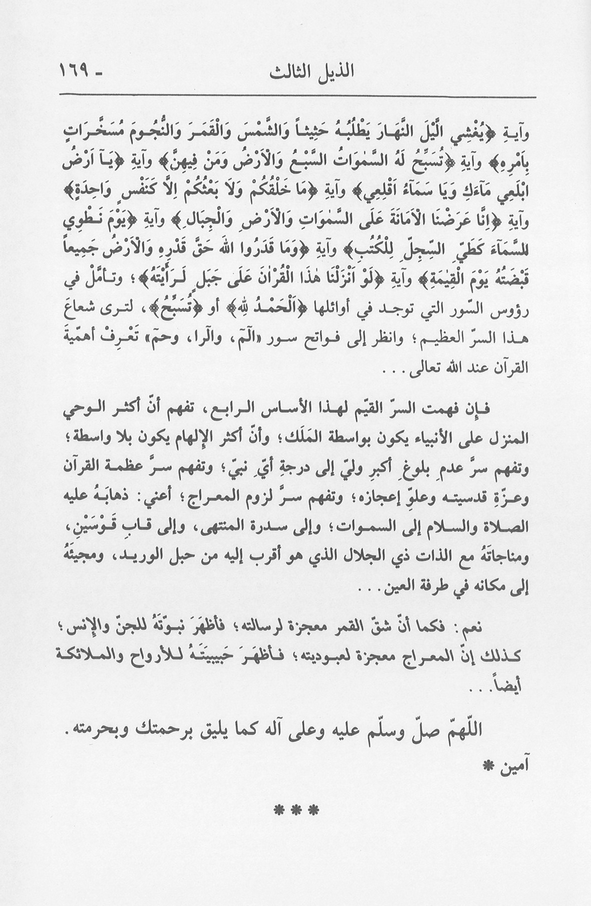 الذيل الثالث - ١٦٩
وآيةِ ﴿يُغْشِي الَّيْلَ النَّهَارَ يَطْلُبُهُ حَثِيثاً وَالشَّمْسَ وَالْقَمَرَ وَالنُّجُومَ مُسَخَّرَاتٍ
بِاَمْرِهِ﴾ وآيةِ ﴿تُسَبِّحُ لَهُ السَّمٰوَاتُ السَّبْعُ وَالْاَرْضُ وَمَنْ فِيهِنَّ﴾ وآيةِ ﴿يَٓا اَرْضُ
ابْلَعِي مَآءَكِ وَيَا سَمَآءُ اَقْلِعِي﴾ وآيةِ ﴿مَا خَلْقُكُمْ وَلَا بَعْثُكُمْ اِلَّا كَنَفْسٍ وَاحِدَةٍ﴾
وآيةِ ﴿اِنَّا عَرَضْنَا الْاَمَانَةَ عَلَى السَّمٰوَاتِ وَالْاَرْضِ وَالْجِبَالِ﴾ وآيةِ ﴿يَوْمَ نَطْوِي
للسَّمَآءَ كَطَيِّ السِّجِلِّ لِلْكُتُبِ﴾ وآيةِ ﴿وَمَا قَدَرُوا اللهَ حَقَّ قَدْرِهِ وَالْاَرْضُ جَمِيعاً
قَبْضَتُهُ يَوْمَ الْقِيٰمَةِ﴾ وآيةِ ﴿لَوْ اَنْزَلْنَا هٰذَا الْقُرْاٰنَ عَلَى جَبَلٍ لَرَأَيْتَهُ﴾؛ وتأمَّلْ في
رؤوس السّور التي توجد في أوائلها ﴿اَلْحَمْدُ لِلهِ﴾ أو ﴿تُسَبِّحُ﴾، لترى شعاعَ
هذا السرّ العظيم؛ وانظر إلى فواتح سور «الٓمٓ، والٓرا، وحمٓ» تَعْرِفْ أهمّيةَ
القرآن عند الله تعالى...
فإن فهمت السرّ القيّم لهذا الأساس الرابع، تفهم أنّ أكثر الوحي
المنزل على الأنبياء يكون بواسطة المَلَك؛ وأنّ أكثر الإلهام يكون بلا واسطة؛
وتفهم سرَّ عدمِ بلوغِ أكبرِ وليّ إلى درجةِ أيّ نبيّ؛ وتفهم سرَّ عظمة القرآن
وعزّةِ قدسيته وعلوِّ إعجازه؛ وتفهم سرَّ لزوم المعراج؛ أعني: ذهابَهُ عليه
الصلاة والسلام إلى السموات؛ وإلى سدرة المنتهى، وإلى قابِ قَوْسَيْنِ،
ومناجاتَهُ مع الذات ذي الجلال الذي هو أقرب إليه من حبل الوريد، ومجيئَهُ
إلى مكانه في طرفة العين...
نعم: فكما أنّ شقّ القمر معجزة لرسالته؛ فأظهَرَ نبوّتَهُ للجنّ والإنس؛
كذلك إنّ المعراج معجزة لعبوديته؛ فأظهَرَ حَبيبيَتَهُ للأرواح والملائكة
أيضاً...
اللّهمّ صلّ وسلّم عليه وعلى آله كما يليق برحمتك وبحرمته.
آمين *
* * *